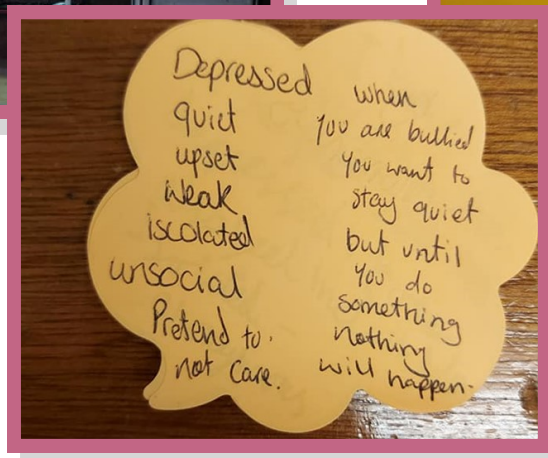 Depressed
quiet
upset
weak
iscolated
unsocial
Pretend to.
not care.
when
you are bullied
you want to
stay quiet
but until
you do
something
nothing
will happen.